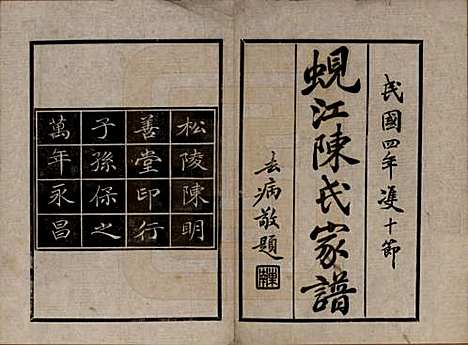 民國四年雙十節
蜆江陳氏家譜
去病敬題
松陵陳明
善堂印行
子孫保之
萬年永昌